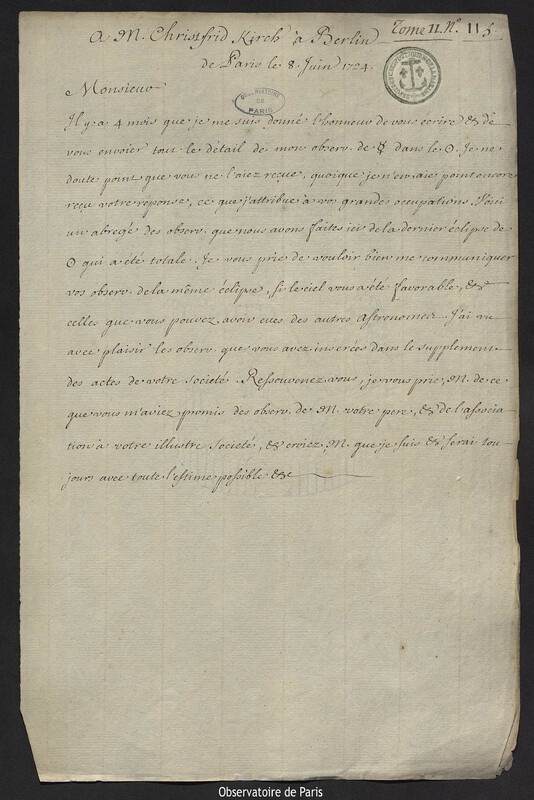 Tome II. N°. 115
A M. Christfrid Kirch à Berlin
de Paris le 8. Juin 1724.
Monsieur
PARIS
Il y a 4 mois que je me suis donné l'honneur de vous ecrire & de
vous envoier tout le détail de mon observ. de ☿ dans le ☉. Je ne
doute point que vous ne l'aiez reçue, quoique je n'en aie point encore
reçu votre réponse, ce que j'attribue à vos grandes occupations. Voici
un abregé des observ. que nous avons faites ici de la dernier éclipse de
☉ qui a été totale. Je vous prie de vouloir bien me communiquer
vos observ. de la même éclipse, si le ciel vous a été favorable, &
celles que vous pouvez avoir eues des autres Astronomes. J'ai vu
avec plaisir les observ. que vous avez inserées dans le supplement
des actes de votre société. Ressouvenez vous, je vous prie, M. de ce
que vous m'aviez promis des observ. de M. votre pere, & de l'associa-
tion à votre illustre société, & croiez, M. que je suis & serai tou-
jours avec toute l'estime possible &c
Observatoire de Paris